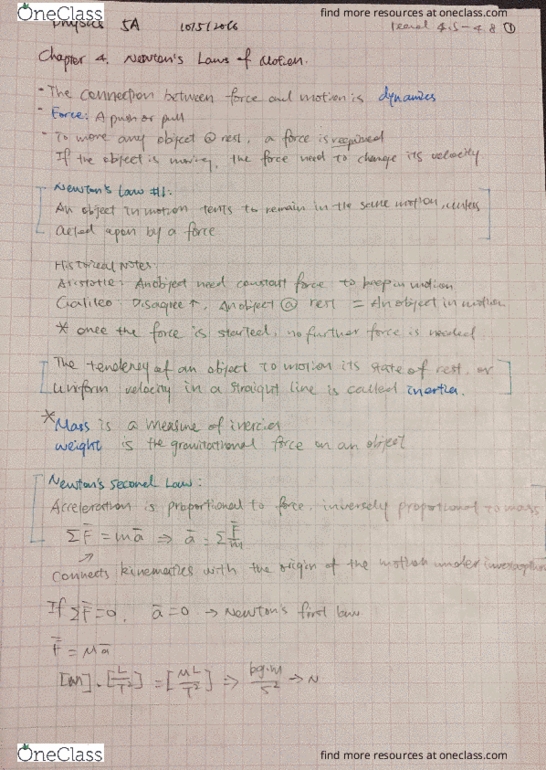 OneClass
find more resources at oneclass.com
Physics 5A 10/5/2016 4.5-4.8 ①
Chapter 4. Newton's Laws of Motion.
- The connection between force and motion is dynamics
- Force: A push or pull
- To move any object @ rest, a force is required
If the object is moving, the force need to change its velocity
Newton's Law #1:
An object in motion tents to remain in the same motion, unless
acted upon by a force
Historical Notes:
Aristotle: An object need constant force to keep in motion
Galileo: Disagree ↑, An object @ rest = An object in motion
* once the force is started, no further force is needed
The tendency of an object to motion its state of rest, or
uniform velocity in a straight line is called inertia.
* Mass is a measure of inercia
weight is the gravitational force on an object
Newton's Second Law:
Acceleration is proportional to force, inversely proportional to mass
ΣF̄ = mā ⇒ ā = Σ F̄/m
Connects kinematics with the origin of the motion under
If ΣF̄=0, ā=0 → Newton's first law
F̄ = Mā
[M]·[L/T²] = [ML/T²] ⇒ kg·m/s² → N
OneClass
find more resources at oneclass.com